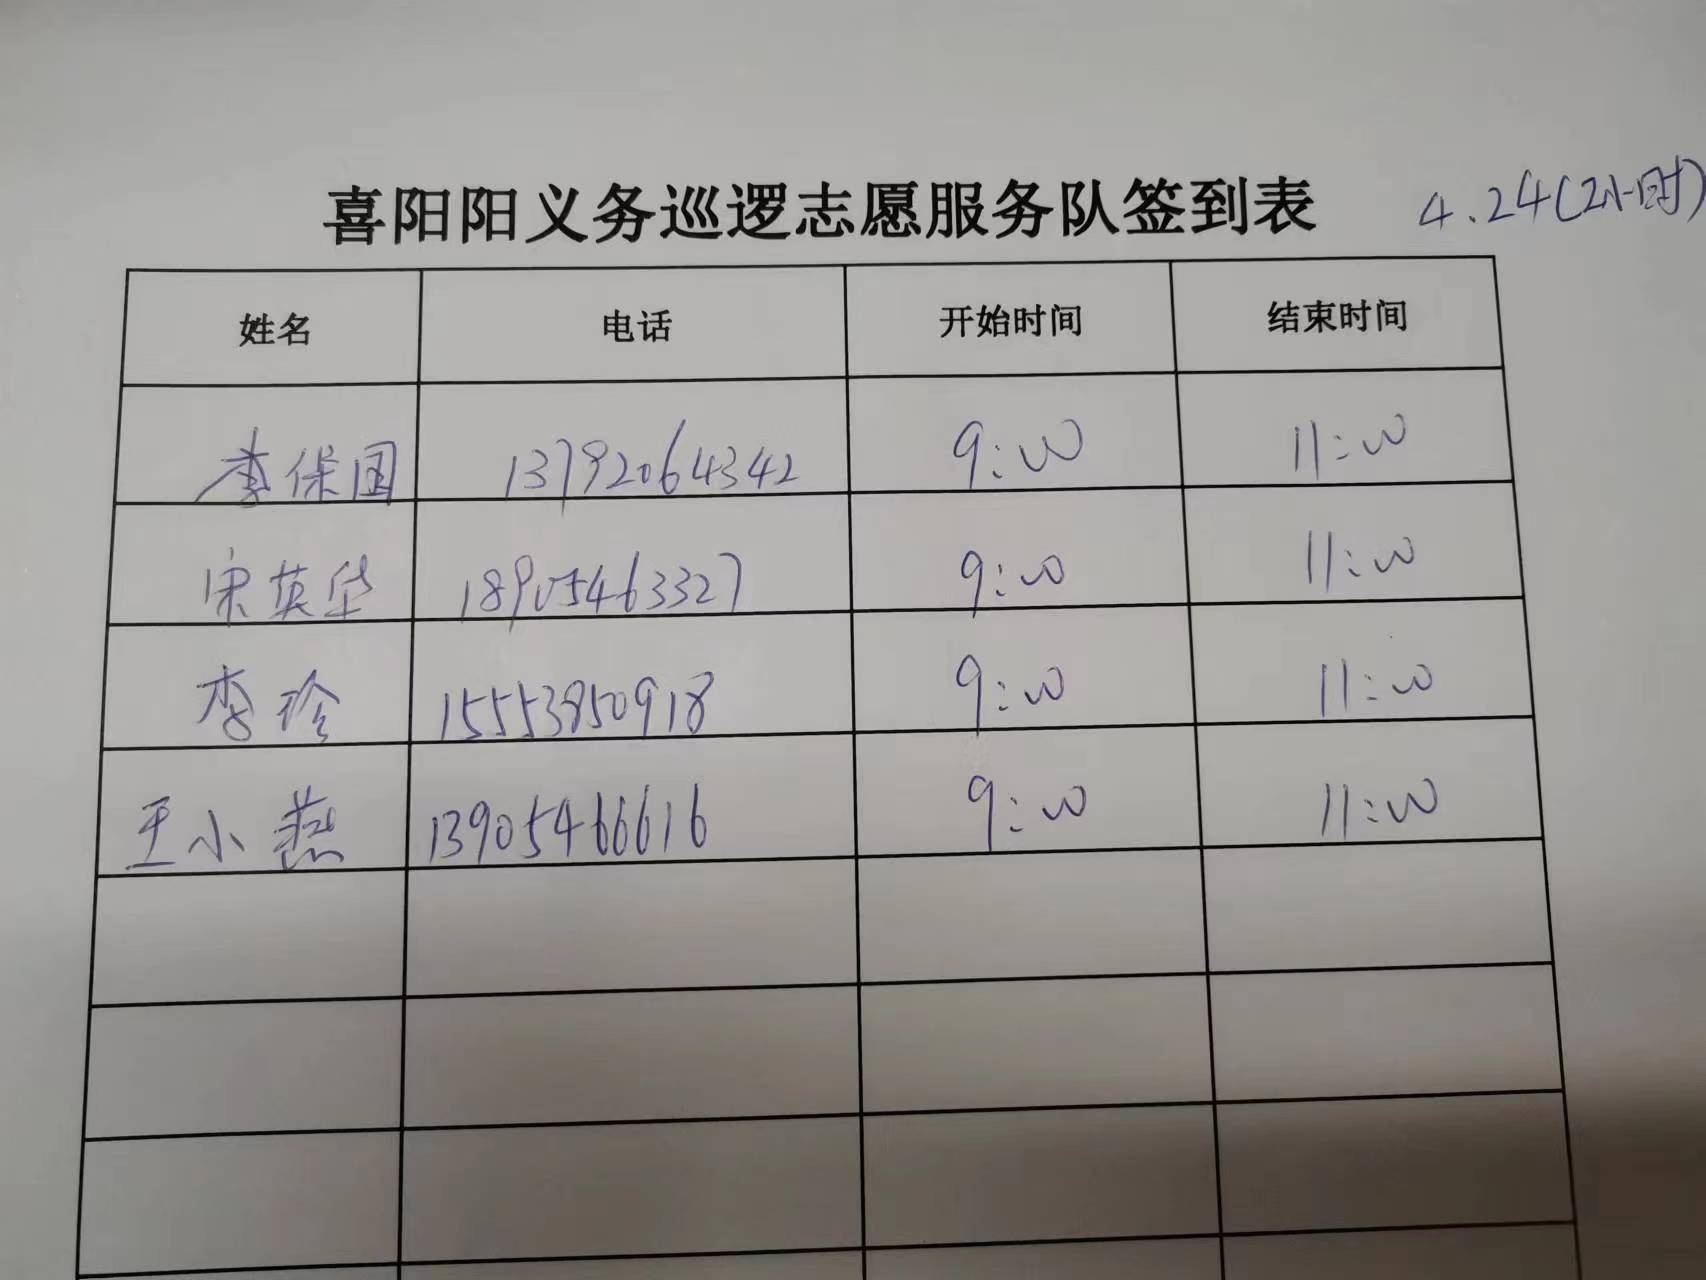 喜阳阳义务巡逻志愿服务队签到表 4.24(2小时)
姓名 电话 开始时间 结束时间
李保国 13792064342 9:00 11:00
宋英华 18905463327 9:00 11:00
李珍 15553850918 9:00 11:00
王小燕 13905466616 9:00 11:00